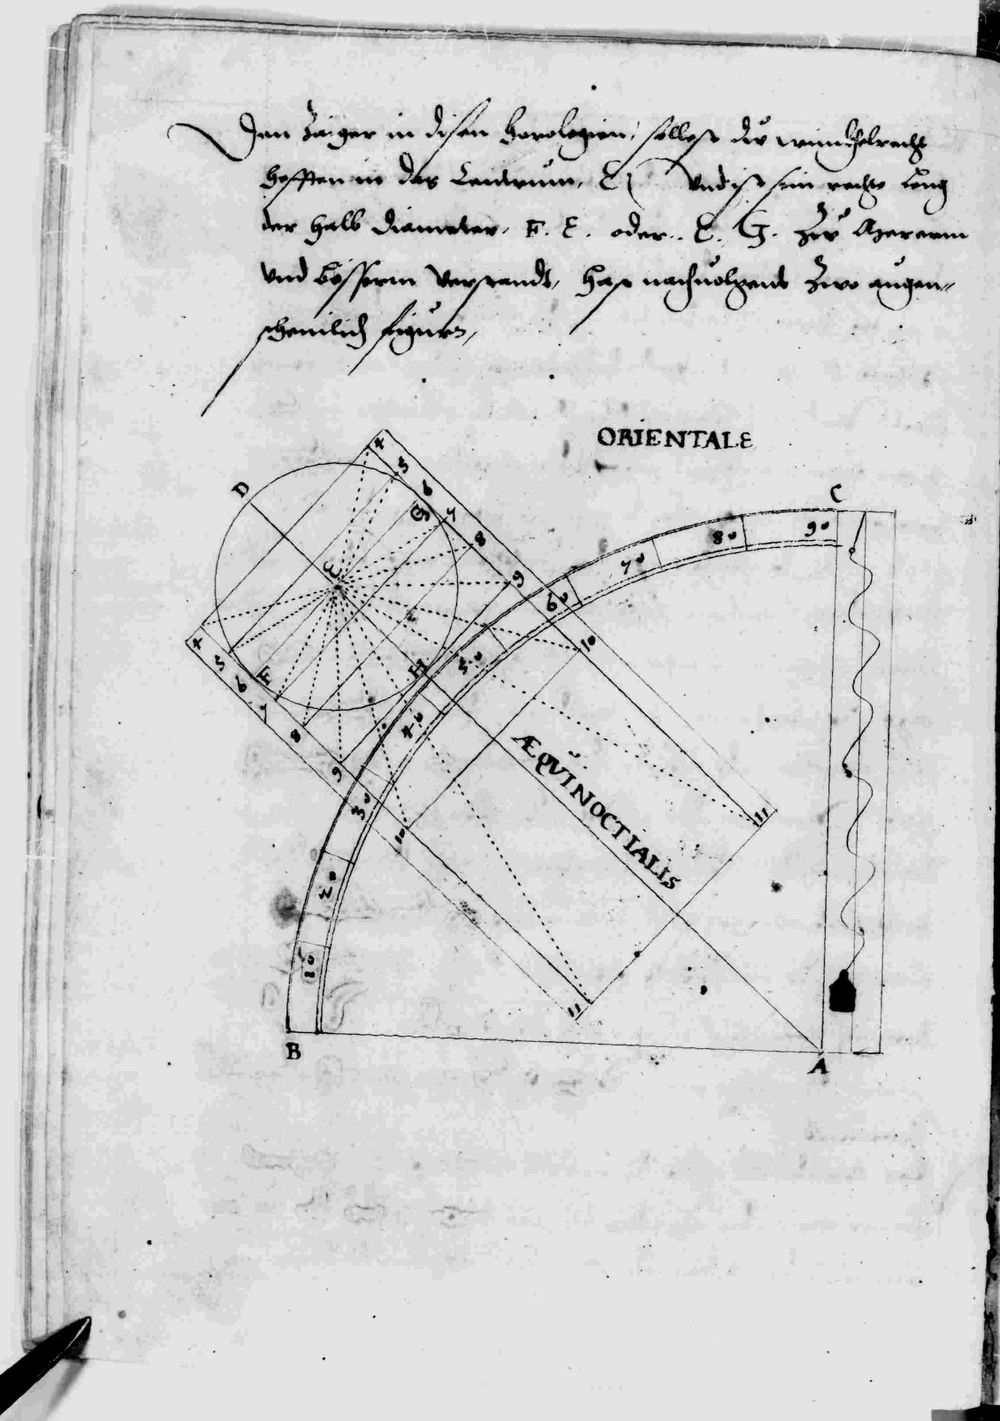 Den Zaiger in disen horologien, sollest du winckelrecht
hefften in das Centrum, E. Vnd ist sein rechte leng
der halb diameter. F. E. oder. E. G. Zu merern
vnd bösserm verstandt, hast nachuolgent zwo augen-
scheinlich figurn,
ORIENTALE
C
D
4
5
6
G
7
8
9
10
11
90
80
70
60
50
40
30
20
10
E
H
F
4
5
6
7
8
9
10
11
ÆQVINOCTIALIS
B
A